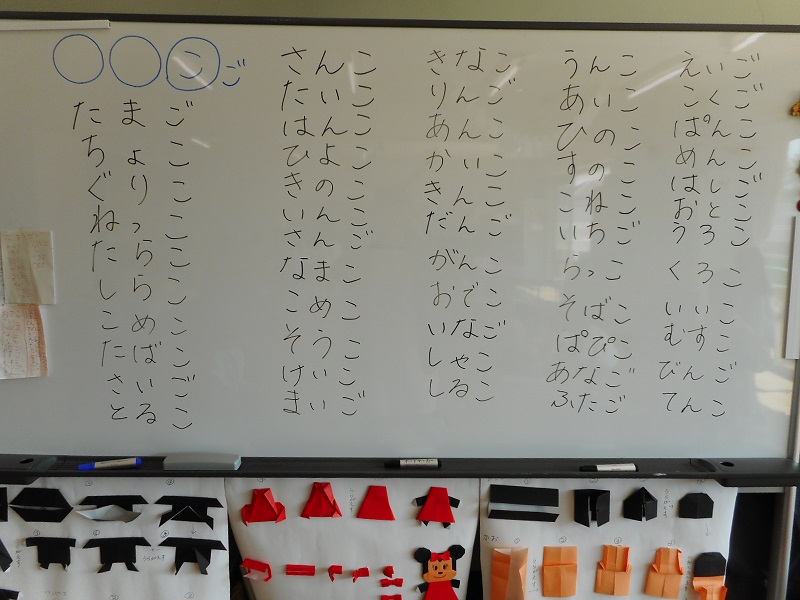 ○○こご
たまご
ちょこ
ぐりこ
ねっこ
たらこ
しらこ
こめこ
たばこ
さいご
とるこ
さんこ
たいこ
はんこ
ひよこ
きのこ
いんこ
さんご
なまこ
こめこ
そうこ
けいこ
まいご
きなこ
りんご
あんこ
かいこ
きんこ
だんご
がんこ
おでこ
いなご
しゃこ
しるこ
うんこ
あいこ
ひのこ
すのこ
こねこ
いちご
らっこ
そばこ
ぱぴこ
あなご
ふたご
えいご
こくご
ぱんこ
めんこ
はしご
おとこ
うろこ
くろこ
いいこ
むすこ
びんご
てんこ